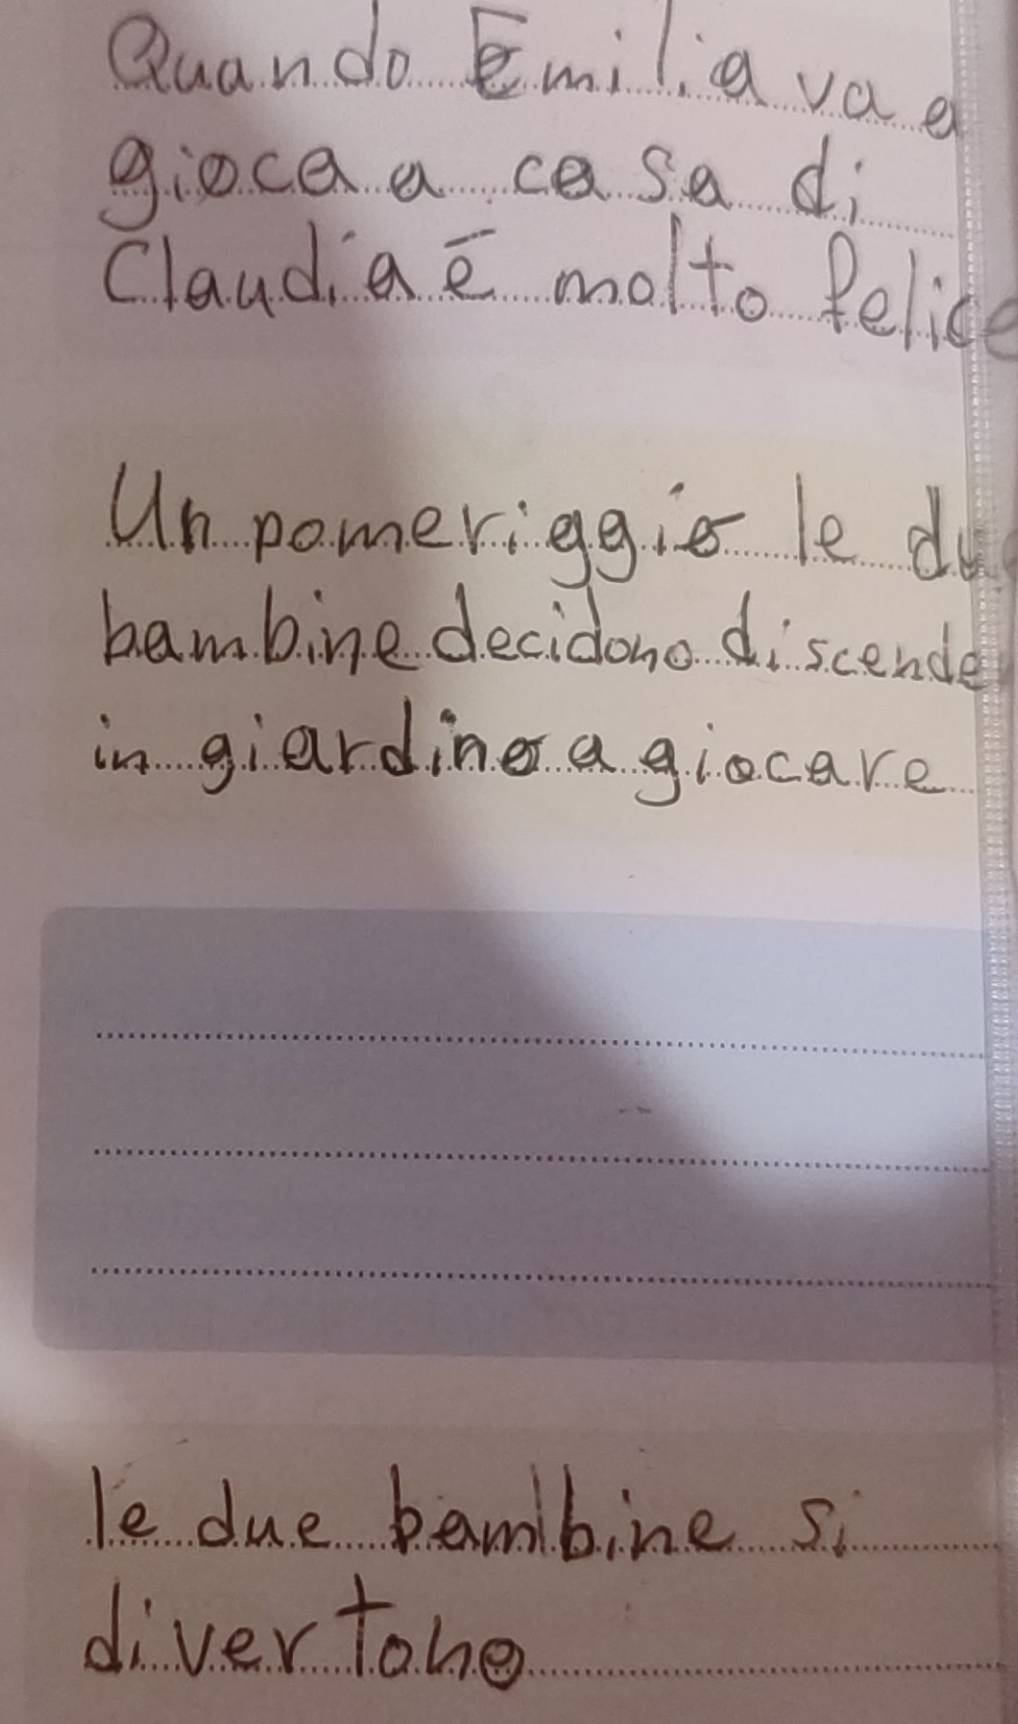 Quando Emilia va a
gioca a casa di
Claudia è molto felice
Un pomeriggio le due
bambine decidono di scende
in giardino a giocare
le due bambine si
divertono